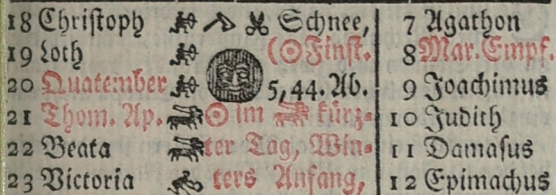 18 Chriſtoph Schnee, 7 Agathon
19 Loth (☉Finſt. 8 Mar. Empf.
20 Quatember 5,44. Ab. 9 Joachimus
21 Thom. Ap. ☉ im kürz- 10 Judith
22 Beata ter Tag, Win- 11 Damaſus
23 Victoria ters Anfang, 12 Epimachus